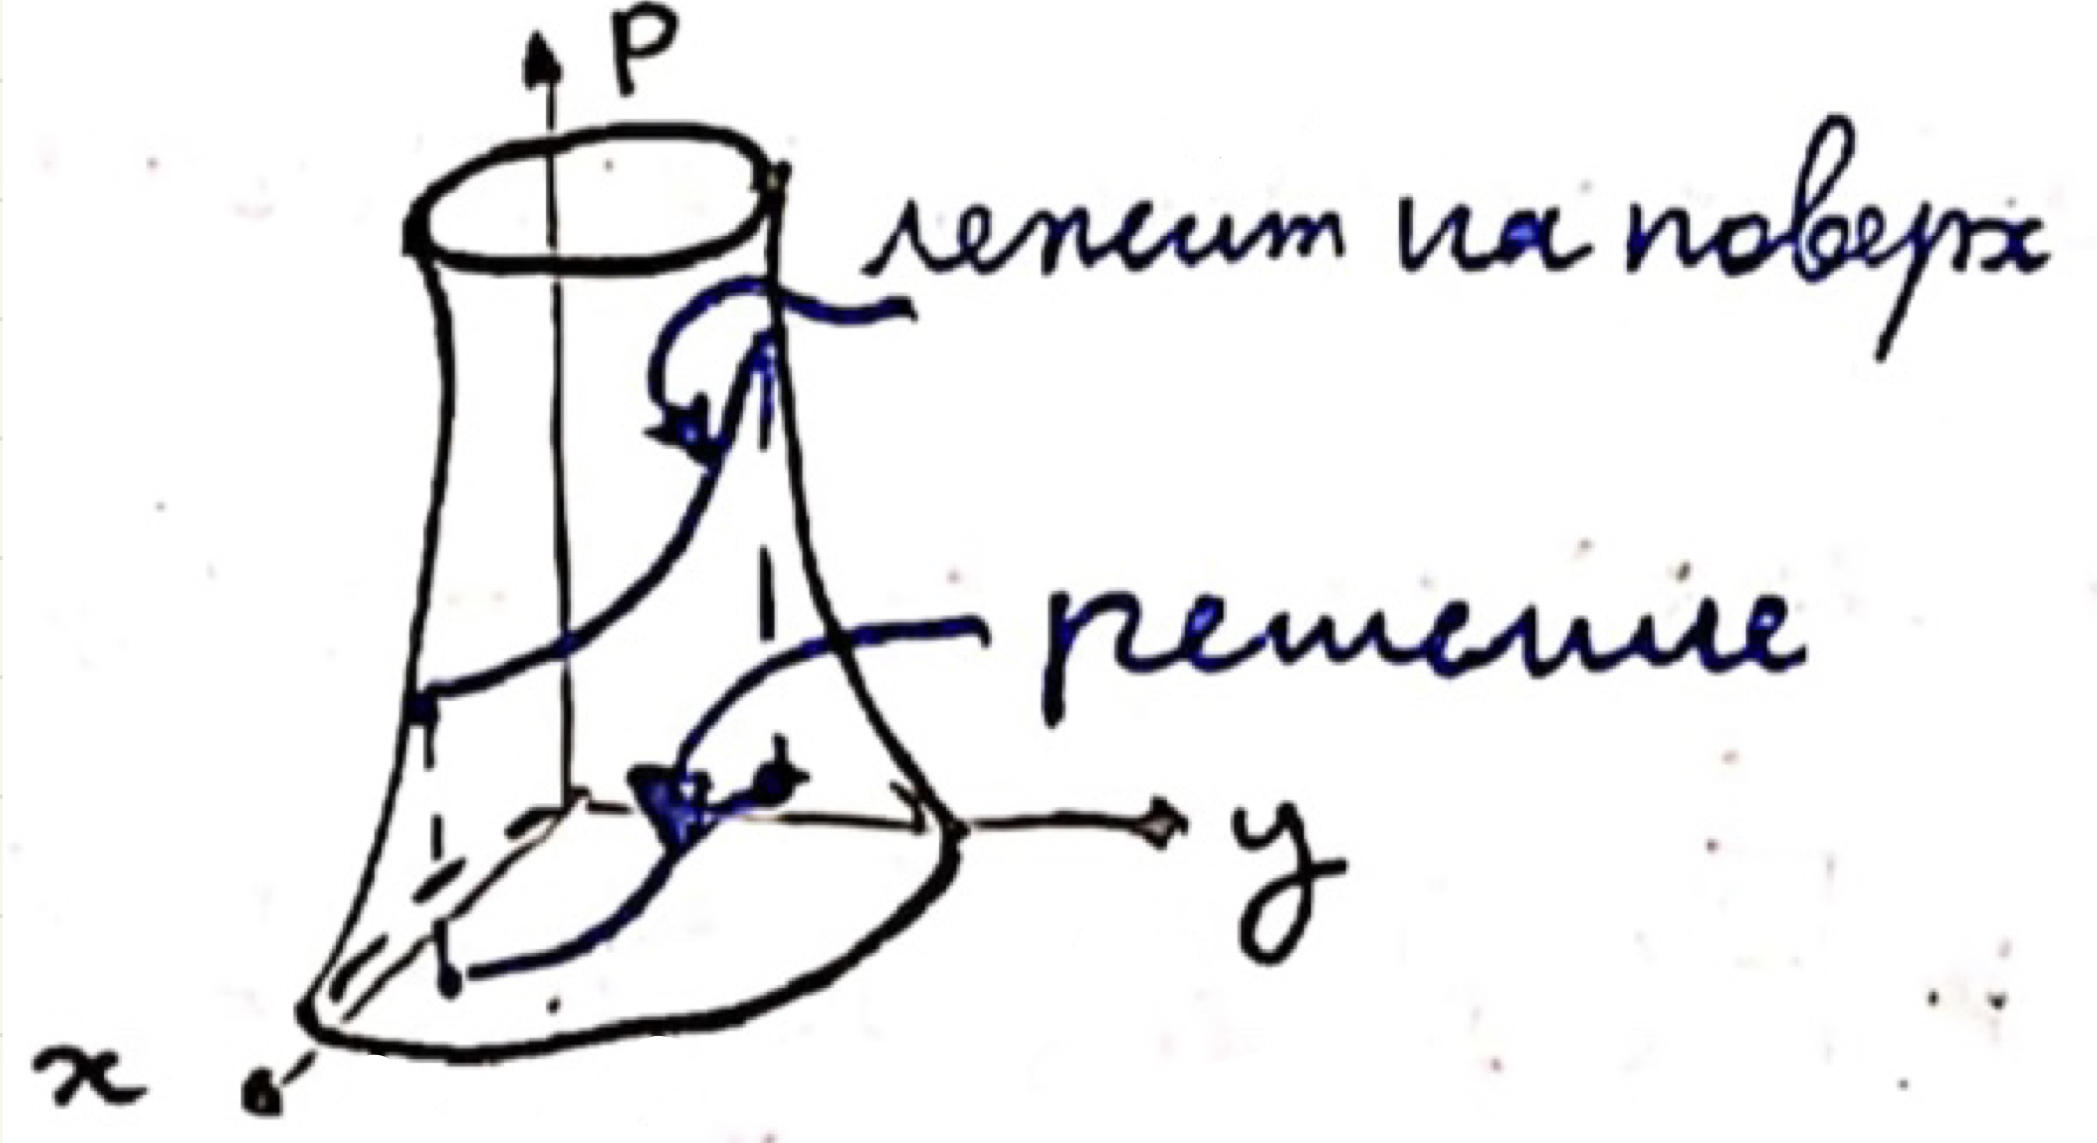 P
лежит на поверх
решение
y
x